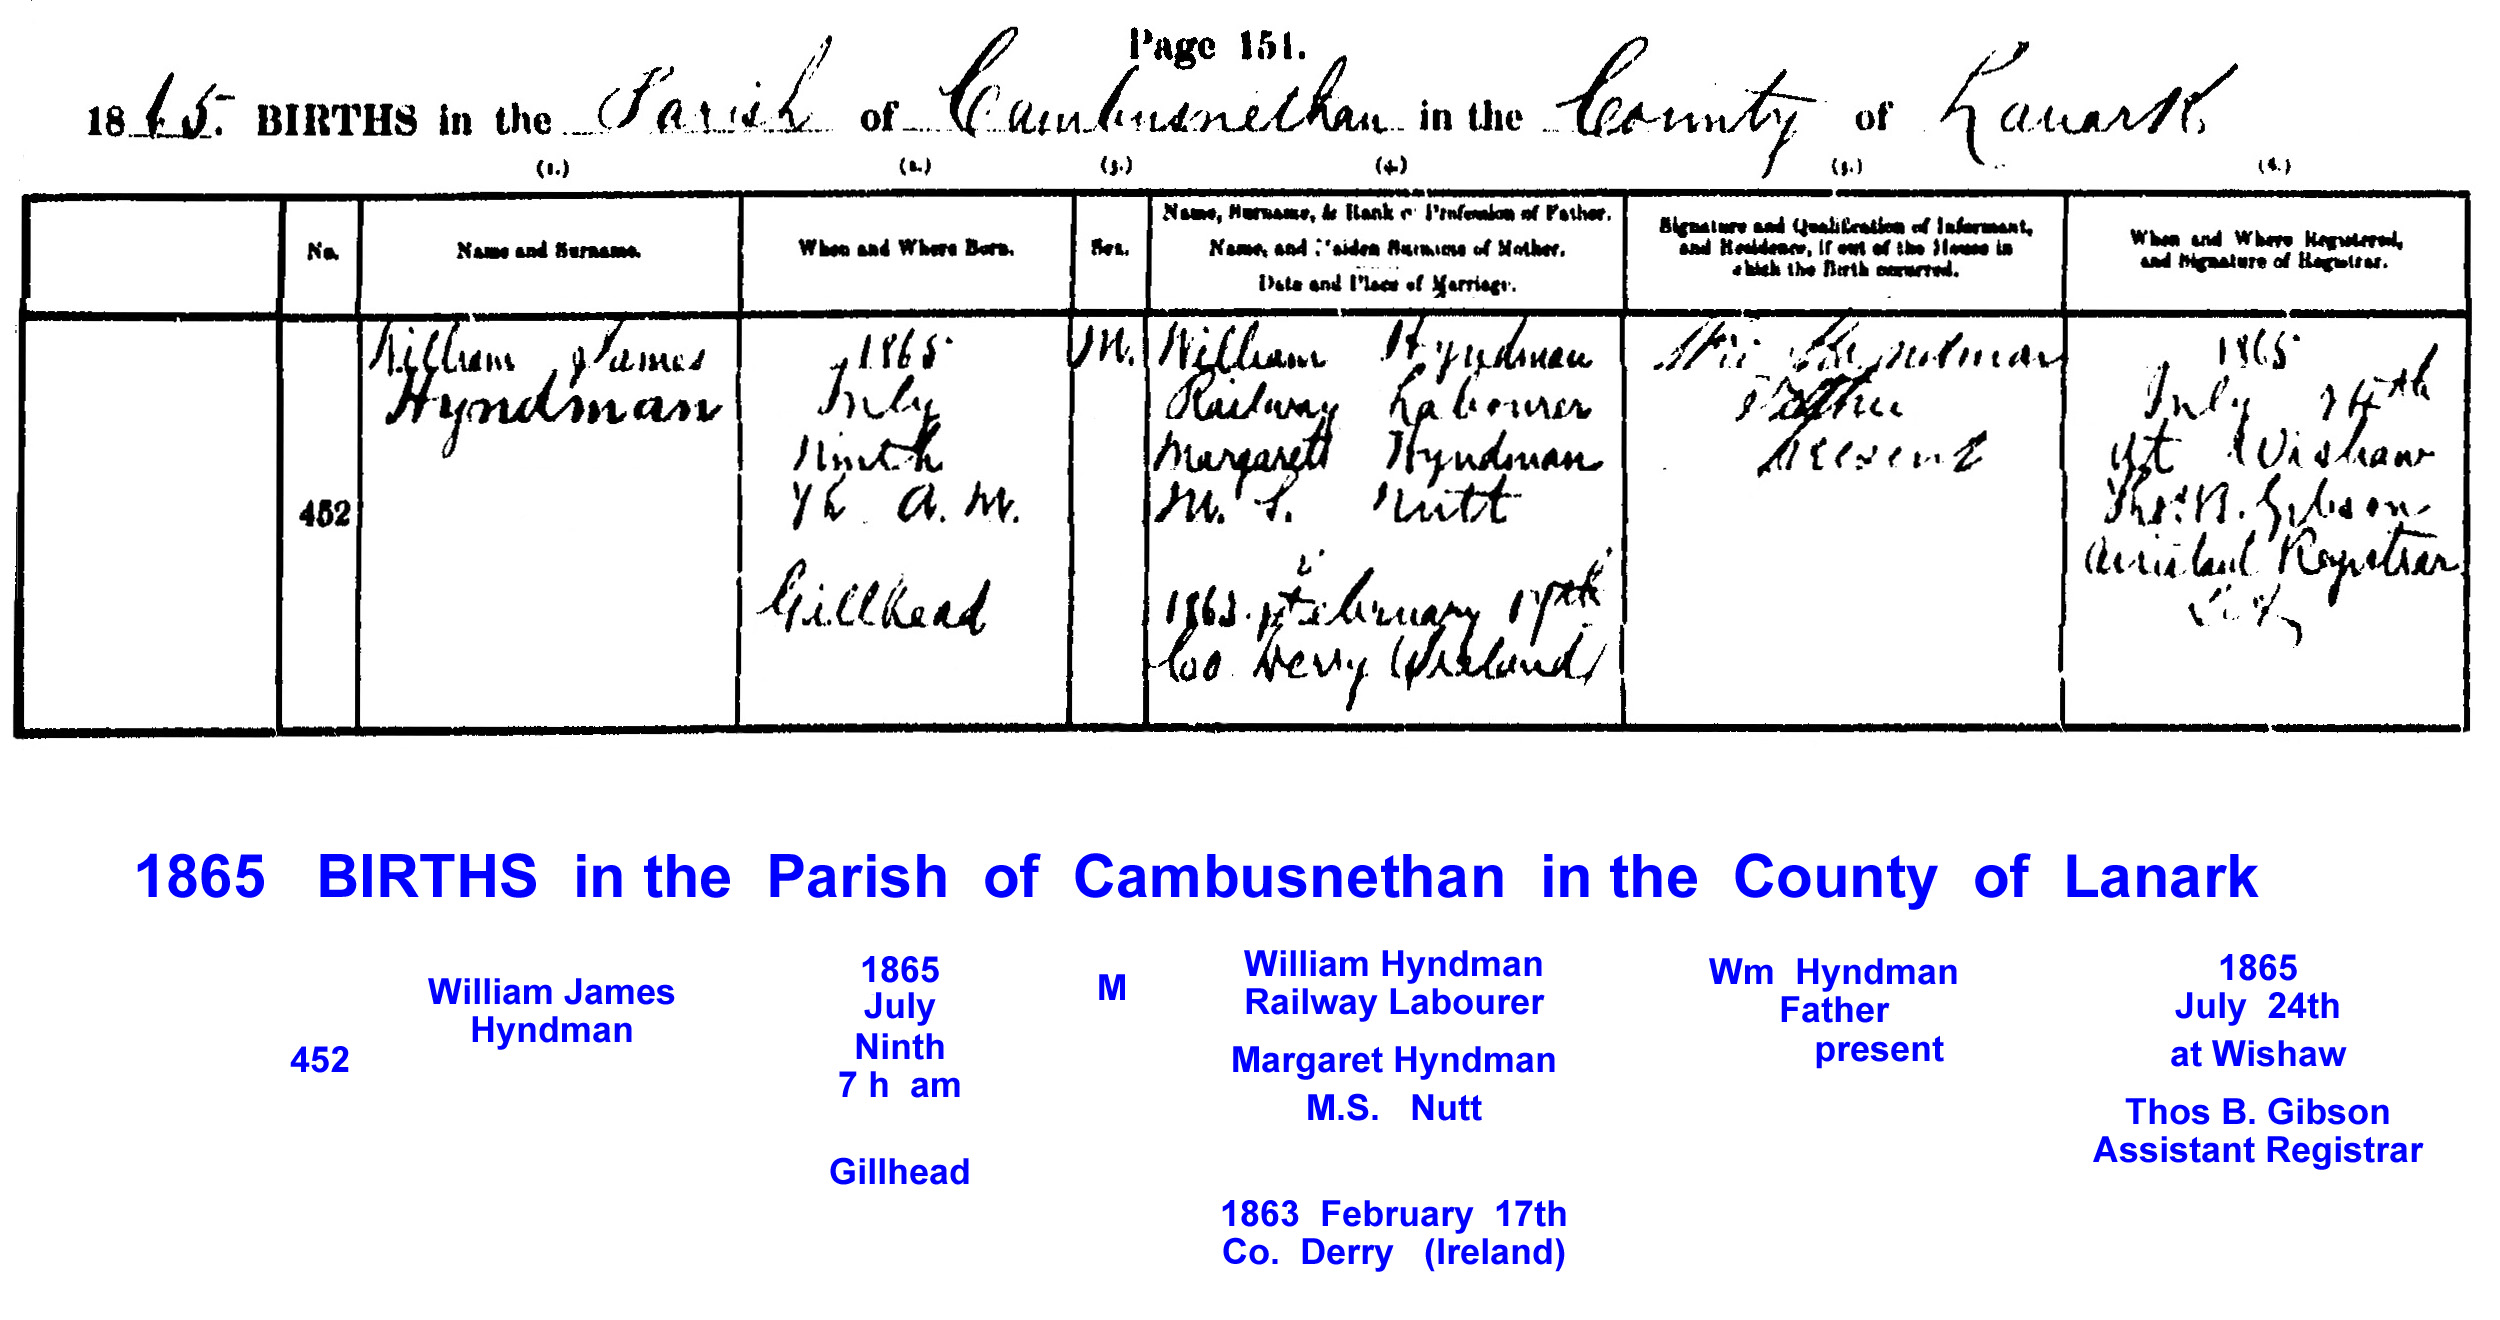 Page 151.
1865. BIRTHS in the Parish of Cambusnethan in the County of Lanark.
(1.) (2.) (3.) (4.) (5.) (6.)
No.
Name and Surname.
When and Where Born.
Sex.
Name, Surname, & Rank or Profession of Father.
Name, and Maiden Surname of Mother.
Date and Place of Marriage.
Signature and Qualification of Informant,
and Residence, if out of the House in
which the Birth occurred.
When and Where Registered,
and Signature of Registrar.
452
William James
Hyndman
1865
July
Ninth
7h A. M.
Gillhead
M.
William Hyndman
Railway Labourer
Margarett Hyndman
M. S. Nutt
1863. February 17th
Co Derry (Ireland)
Wm Hyndman
Father
present
1865
July 24th
At Wishaw
Thos. B. Gibson
Assistant Registrar
1865 BIRTHS in the Parish of Cambusnethan in the County of Lanark
452
William James
Hyndman
1865
July
Ninth
7 h am
Gillhead
M
William Hyndman
Railway Labourer
Margaret Hyndman
M.S. Nutt
1863 February 17th
Co. Derry (Ireland)
Wm Hyndman
Father
present
1865
July 24th
at Wishaw
Thos B. Gibson
Assistant Registrar